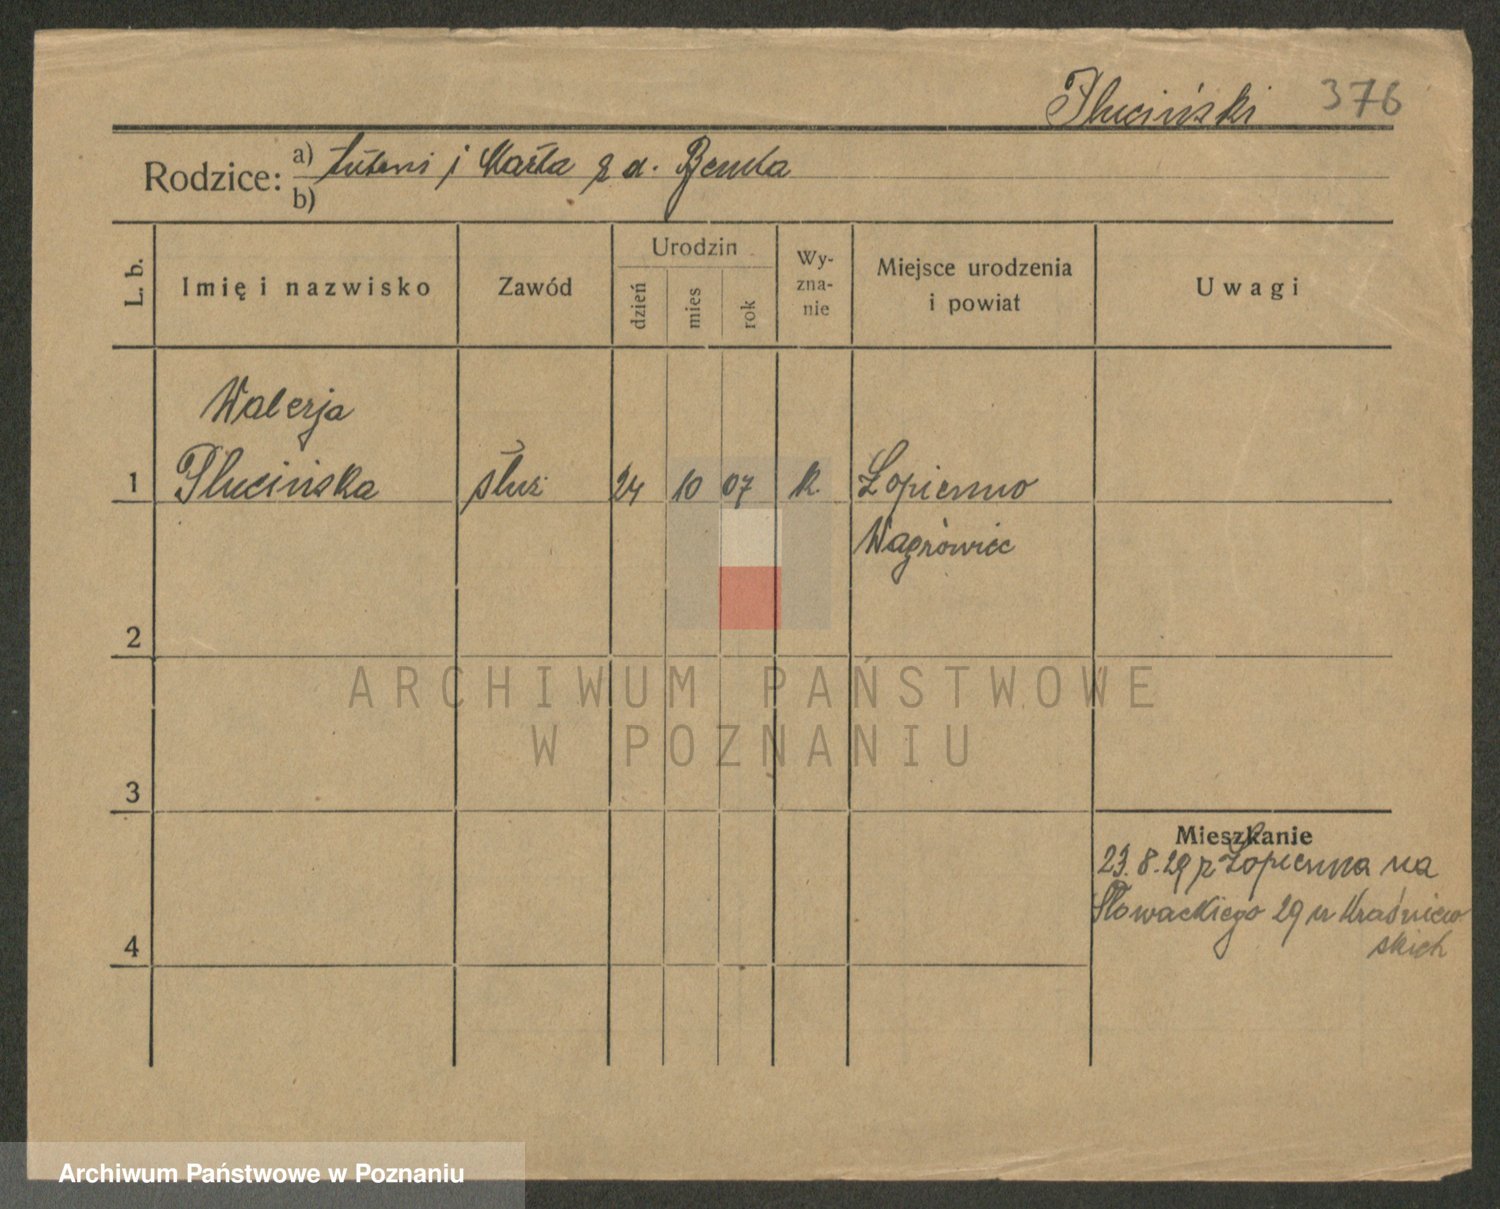 Pluciński 376
Rodzice: a) Antoni i Marta z d. Bemka
b)
L. b.
Imię i nazwisko
Zawód
Urodzin
dzień
mies
rok
Wy-
zna-
nie
Miejsce urodzenia
i powiat
Uwagi
Walerja
1 Plucińska służ 24 10 07 k. Łopienno
Wągrówiec
2
ARCHIWUM PAŃSTWOWE
W POZNANIU
3
Mieszkanie
23.8.29 z Łopienna na
Słowackiego 29 u Kraśniew
skich
4
Archiwum Państwowe w Poznaniu